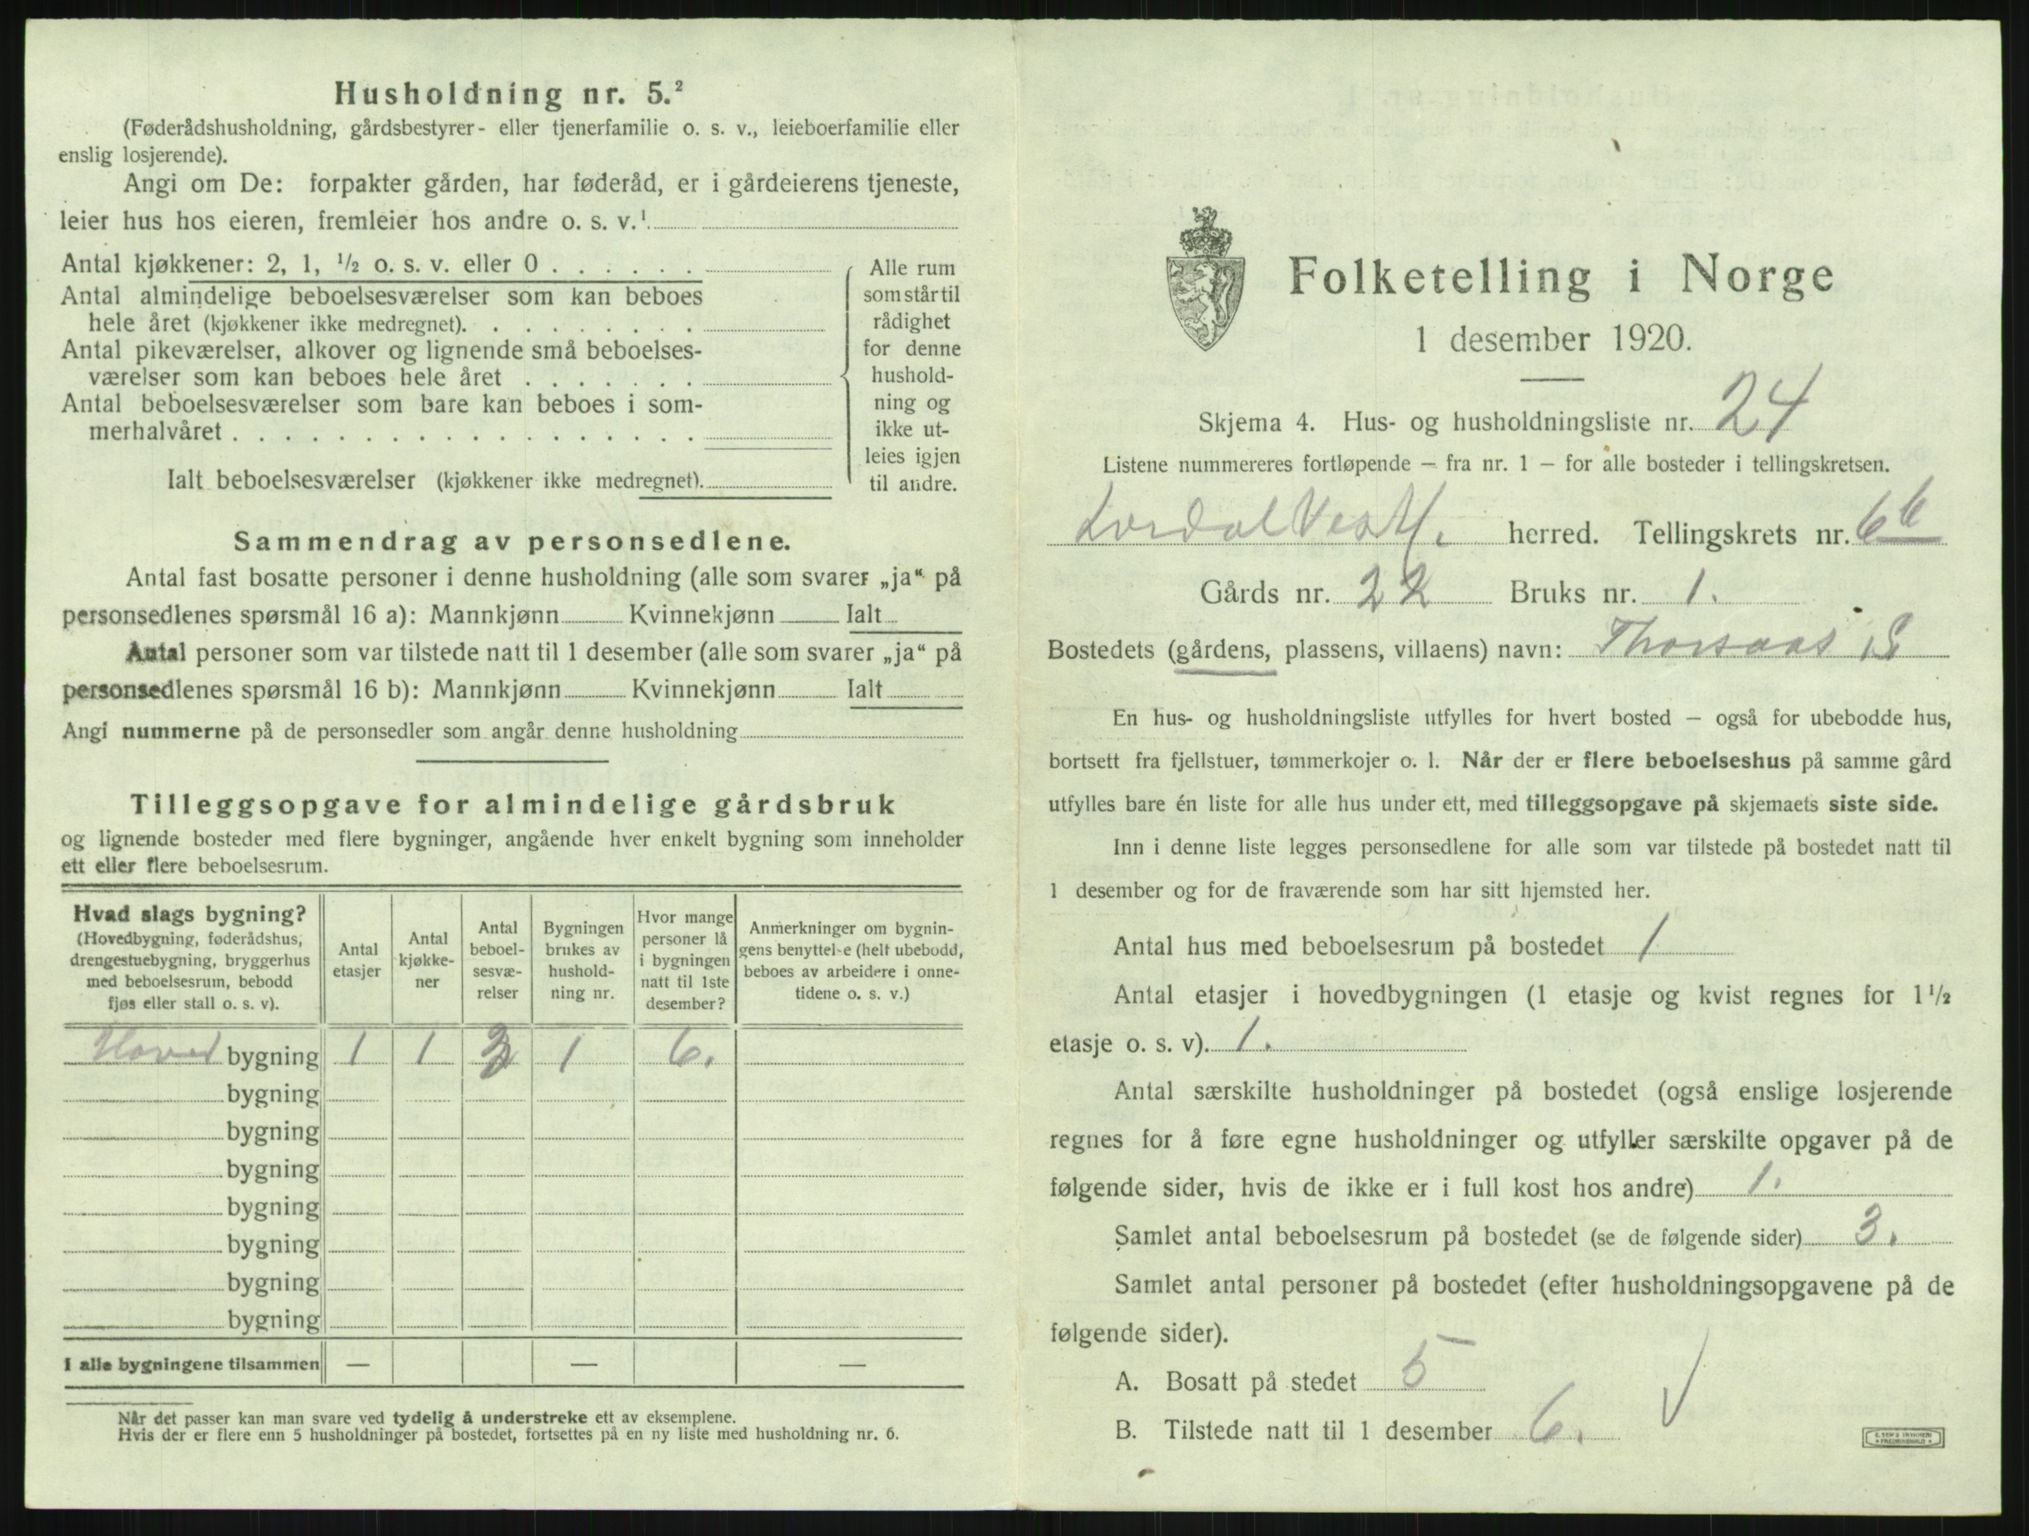 Husholdning nr. 5.²
(Føderådshusholdning, gårdsbestyrer- eller tjenerfamilie o. s. v., leieboerfamilie eller
enslig losjerende).
Angi om De: forpakter gården, har føderåd, er i gårdeierens tjeneste,
leier hus hos eieren, fremleier hos andre o. s. v.¹
Antal kjøkkener: 2, 1, ½ o. s. v. eller 0 . . . . . .
Antal almindelige beboelsesværelser som kan beboes
hele året (kjøkkener ikke medregnet). . . . . . . . .
Antal pikeværelser, alkover og lignende små beboelses-
værelser som kan beboes hele året . . . . . . .
Antal beboelsesværelser som bare kan beboes i som-
merhalvåret . . . . . . . . . . . . . . . . .
Ialt beboelsesværelser (kjøkkener ikke medregnet).
Alle rum
som står til
rådighet
for denne
hushold-
ning og
ikke ut-
leies igjen
til andre.
Sammendrag av personsedlene.
Antal fast bosatte personer i denne husholdning (alle som svarer „ja“ på
personsedlenes spørsmål 16 a): Mannkjønn Kvinnekjønn Ialt
Antal personer som var tilstede natt til 1 desember (alle som svarer „ja“ på
personsedlenes spørsmål 16 b): Mannkjønn Kvinnekjønn Ialt
Angi nummerne på de personsedler som angår denne husholdning
Tilleggsopgave for almindelige gårdsbruk
og lignende bosteder med flere bygninger, angående hver enkelt bygning som inneholder
ett eller flere beboelsesrum.
Hvad slags bygning?
(Hovedbygning, føderådshus,
drengestuebygning, bryggerhus
med beboelsesrum, bebodd
fjøs eller stall o. s. v).
Antal
etasjer
Antal
kjøkke-
ner
Antal
beboel-
sesvæ-
relser
Bygningen
brukes av
hushold-
ning nr.
Hvor mange
personer lå
i bygningen
natt til 1ste
desember?
Anmerkninger om bygnin-
gens benyttelse (helt ubebodd,
beboes av arbeidere i onne-
tidene o. s. v.)
Hoved bygning 1 1 3 1 6.
bygning
bygning
bygning
bygning
bygning
bygning
bygning
I alle bygningene tilsammen — — —
Når det passer kan man svare ved tydelig å understreke ett av eksemplene.
Hvis der er flere enn 5 husholdninger på bostedet, fortsettes på en ny liste med husholdning nr. 6.
Folketelling i Norge
1 desember 1920.
Skjema 4. Hus- og husholdningsliste nr. 24
Listene nummereres fortløpende – fra nr. 1 – for alle bosteder i tellingskretsen.
herred. Tellingskrets nr. 6
Gårds nr. 22 Bruks nr. 1.
Bostedets (gårdens, plassens, villaens) navn: Thorsaas
En hus- og husholdningsliste utfylles for hvert bosted – også for ubebodde hus,
bortsett fra fjellstuer, tømmerkojer o. l. Når der er flere beboelseshus på samme gård
utfylles bare én liste for alle hus under ett, med tilleggsopgave på skjemaets siste side.
Inn i denne liste legges personsedlene for alle som var tilstede på bostedet natt til
1 desember og for de fraværende som har sitt hjemsted her.
Antal hus med beboelsesrum på bostedet 1
Antal etasjer i hovedbygningen (1 etasje og kvist regnes for 1½
etasje o. s. v). 1.
Antal særskilte husholdninger på bostedet (også enslige losjerende
regnes for å føre egne husholdninger og utfyller særskilte opgaver på de
følgende sider, hvis de ikke er i full kost hos andre) 1.
Samlet antal beboelsesrum på bostedet (se de følgende sider) 3.
Samlet antal personer på bostedet (efter husholdningsopgavene på de
følgende sider).
A. Bosatt på stedet 5
B. Tilstede natt til 1 desember 6.